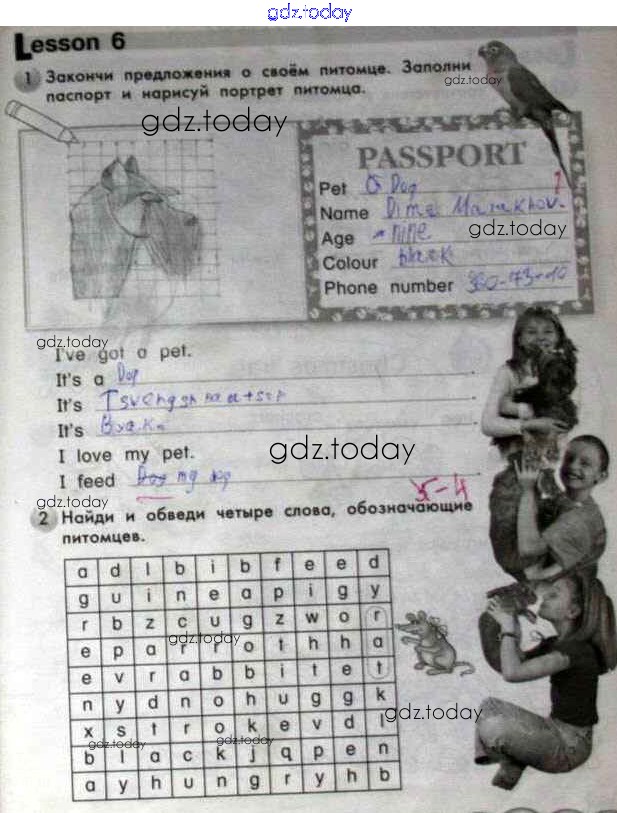 gdz.today
Lesson 6
1 Закончи предложения о своём питомце. Заполни
gdz.today
паспорт и нарисуй портрет питомца.
gdz.today
PASSPORT
Pet a Dog
Name Dima
gdz.today
Age nine
Colour black
Phone number
gdz.today
I've got a pet.
It's a Dog
It's
It's
I love my pet.
gdz.today
I feed my dog
5-4
gdz.today
2 Найди и обведи четыре слова, обозначающие
питомцев.
a d l b i b f e e d
g u i n e a p i g y
r b z c u g z w o r
gdz.today
e p a r r o t h h a
e v r a b b i t e t
n y d n o h u g g k
gdz.today
x s t r o k e v d l
gdz.today
gdz.today
b l a c k j q p e n
a y h u n g r y h b